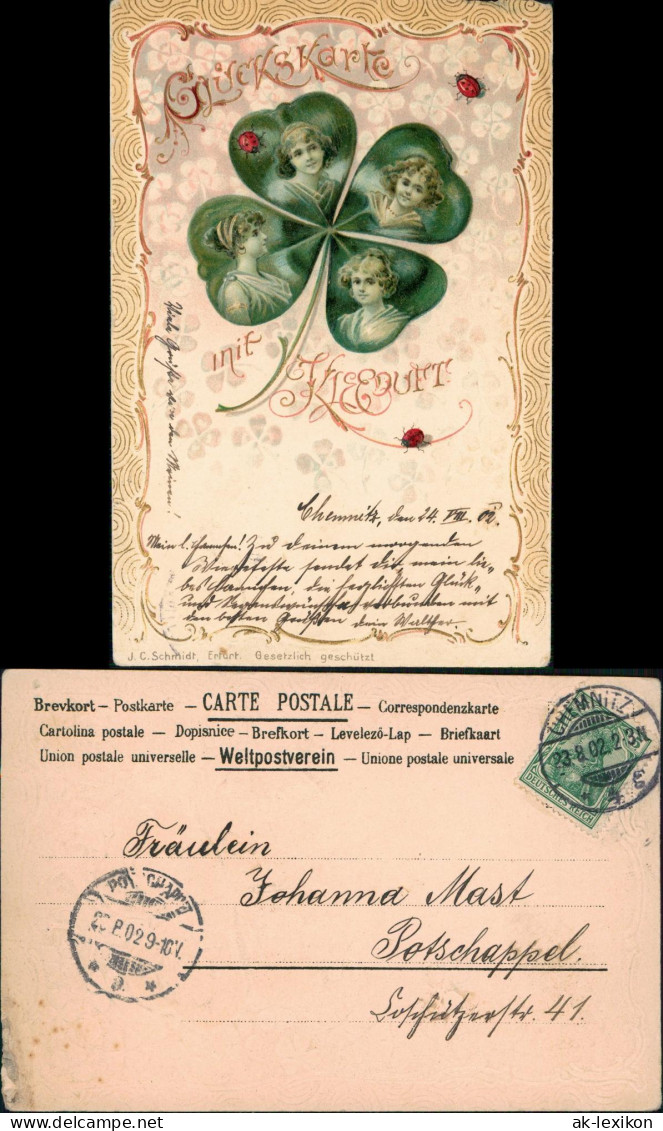 Glückskarte
mit Kleeduft
Viele Grüße von den Meinen!
Chemnitz, den 24. VIII. 02.
Mein l. Hannchen! Zu deinem morgenden
Wiegenfeste sendet dir, mein lie-
bes Hannchen, die herzlichsten Glück-
und Segenswünsche verbunden mit
den besten Grüßen dein Walther.
J. C. Schmidt, Erfurt. Gesetzlich geschützt
Brevkort – Postkarte – CARTE POSTALE – Correspondenzkarte
Cartolina postale – Dopisnice – Brefkort – Levelező-Lap – Briefkaart
Union postale universelle – Weltpostverein – Unione postale universale
CHEMNITZ
23.8.02.2-3N
DEUTSCHES REICH
Fräulein
Johanna Mast
Potschappel.
Coschützerstr. 41.
POTSCHAPPEL
8 02 9-10V.
ak-lexikon
© ak-lexikon.com